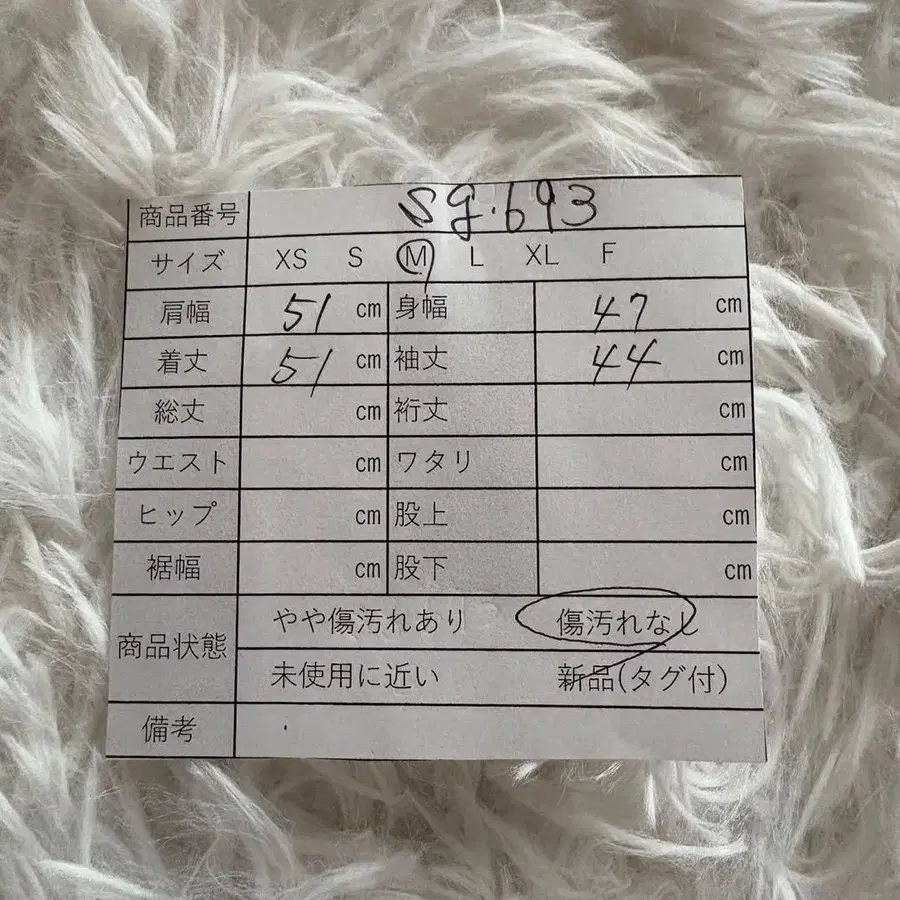 商品番号 sg.693
サイズ XS S M L XL F
肩幅 51 cm 身幅 47 cm
着丈 51 cm 袖丈 44 cm
総丈 cm 裄丈 cm
ウエスト cm ワタリ cm
ヒップ cm 股上 cm
裾幅 cm 股下 cm
商品状態
やや傷汚れあり 傷汚れなし
未使用に近い 新品(タグ付)
備考